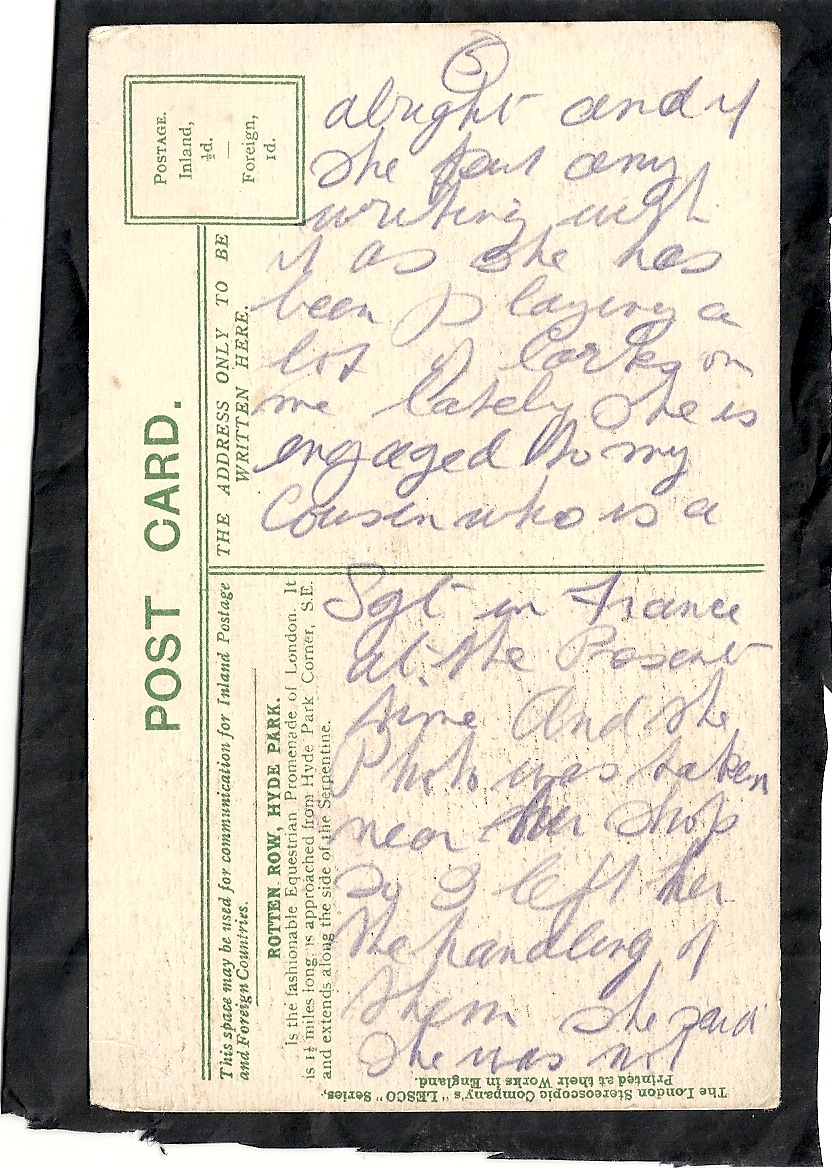 5
alright and if
she put any
writing with
it as she has
been playing a
lot of larks on
me lately She is
engaged to my
Cousin who is a
Sgt in France
at the Present
time And the
Photo was taken
near her shop
So I left her
the handling of
them she said
She was not
POST CARD.
POSTAGE.
Inland,
½d.
—
Foreign,
1d.
This space may be used for communication for Inland Postage
and Foreign Countries.
THE ADDRESS ONLY TO BE
WRITTEN HERE.
ROTTEN ROW, HYDE PARK.
Is the fashionable Equestrian Promenade of London. It
is 1½ miles long, is approached from Hyde Park Corner, S.E.
and extends along the side of the Serpentine.
The London Stereoscopic Company's "LESCO" Series,
Printed at their Works in England.